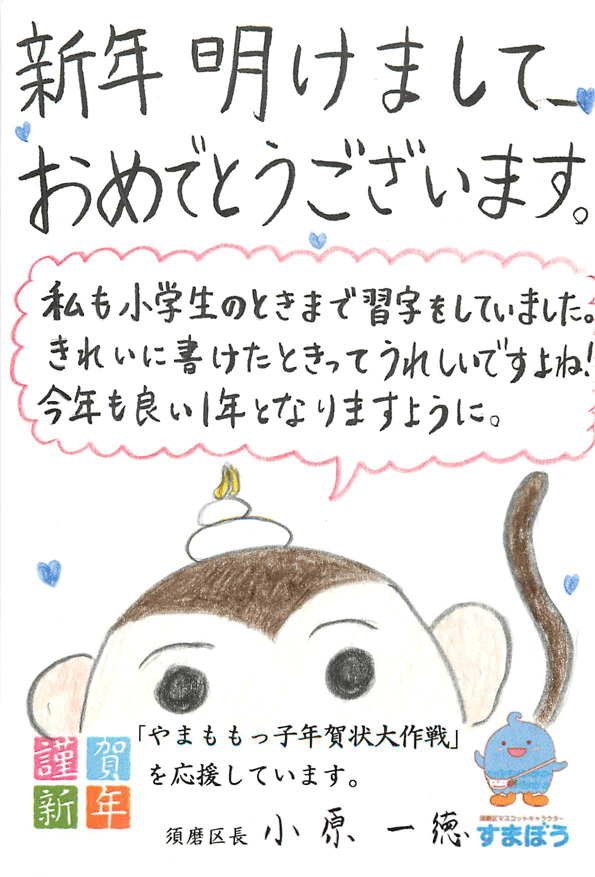 新年 明けまして
おめでとうございます。
私も小学生のときまで習字をしていました。
きれいに書けたときってうれしいですよね!
今年も良い1年となりますように。
「やまももっ子年賀状大作戦」
を応援しています。
謹賀
新年
須磨区長 小原 一徳
須磨区マスコットキャラクター
すまぼう